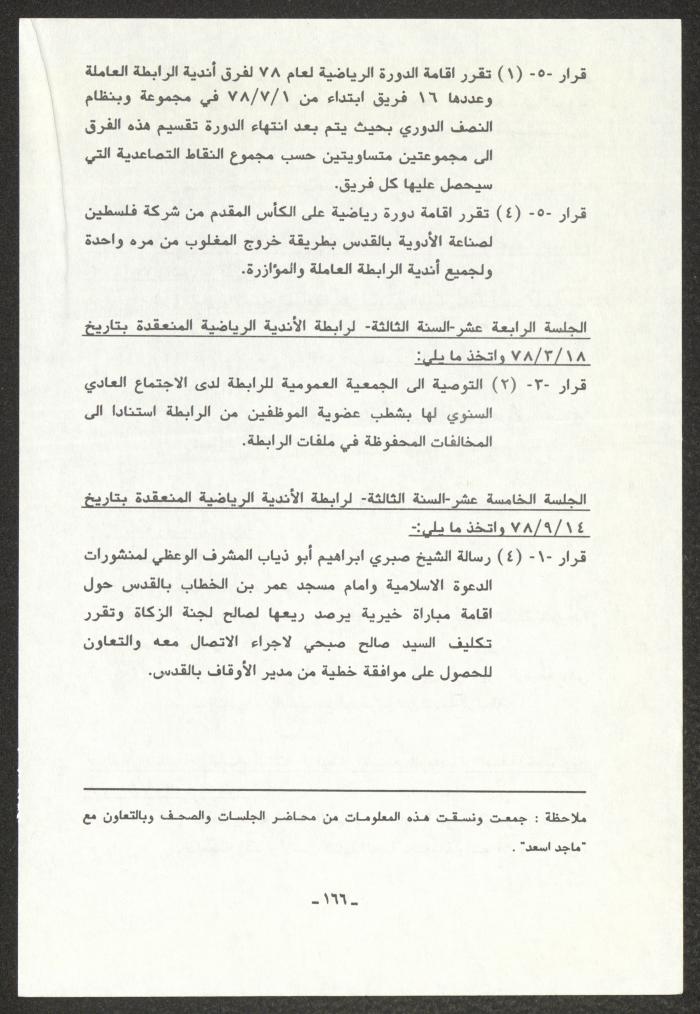 قرار -٥- (١) تقرر اقامة الدورة الرياضية لعام ٧٨ لفرق أندية الرابطة العاملة
وعددها ١٦ فريق ابتداء من ٧٨/٧/١ في مجموعة وبنظام
النصف الدوري بحيث يتم بعد انتهاء الدورة تقسيم هذه الفرق
الى مجموعتين متساويتين حسب مجموع النقاط التصاعدية التي
سيحصل عليها كل فريق.
قرار -٥- (٤) تقرر اقامة دورة رياضية على الكأس المقدم من شركة فلسطين
لصناعة الأدوية بالقدس بطريقة خروج المغلوب من مره واحدة
ولجميع أندية الرابطة العاملة والمؤازرة.
الجلسة الرابعة عشر-السنة الثالثة- لرابطة الأندية الرياضية المنعقدة بتاريخ
٧٨/٣/١٨ واتخذ ما يلي:
قرار -٣- (٢) التوصية الى الجمعية العمومية للرابطة لدى الاجتماع العادي
السنوي لها بشطب عضوية الموظفين من الرابطة استنادا الى
المخالفات المحفوظة في ملفات الرابطة.
الجلسة الخامسة عشر-السنة الثالثة- لرابطة الأندية الرياضية المنعقدة بتاريخ
٧٨/٩/١٤ واتخذ ما يلي:-
قرار -١- (٤) رسالة الشيخ صبري ابراهيم أبو ذياب المشرف الوعظي لمنشورات
الدعوة الاسلامية وامام مسجد عمر بن الخطاب بالقدس حول
اقامة مباراة خيرية يرصد ريعها لصالح لجنة الزكاة وتقرر
تكليف السيد صالح صبحي لاجراء الاتصال معه والتعاون
للحصول على موافقة خطية من مدير الأوقاف بالقدس.
ملاحظة : جمعت ونسقت هذه المعلومات من محاضر الجلسات والصحف وبالتعاون مع
"ماجد اسعد" .
ـ ١٦٦ ـ